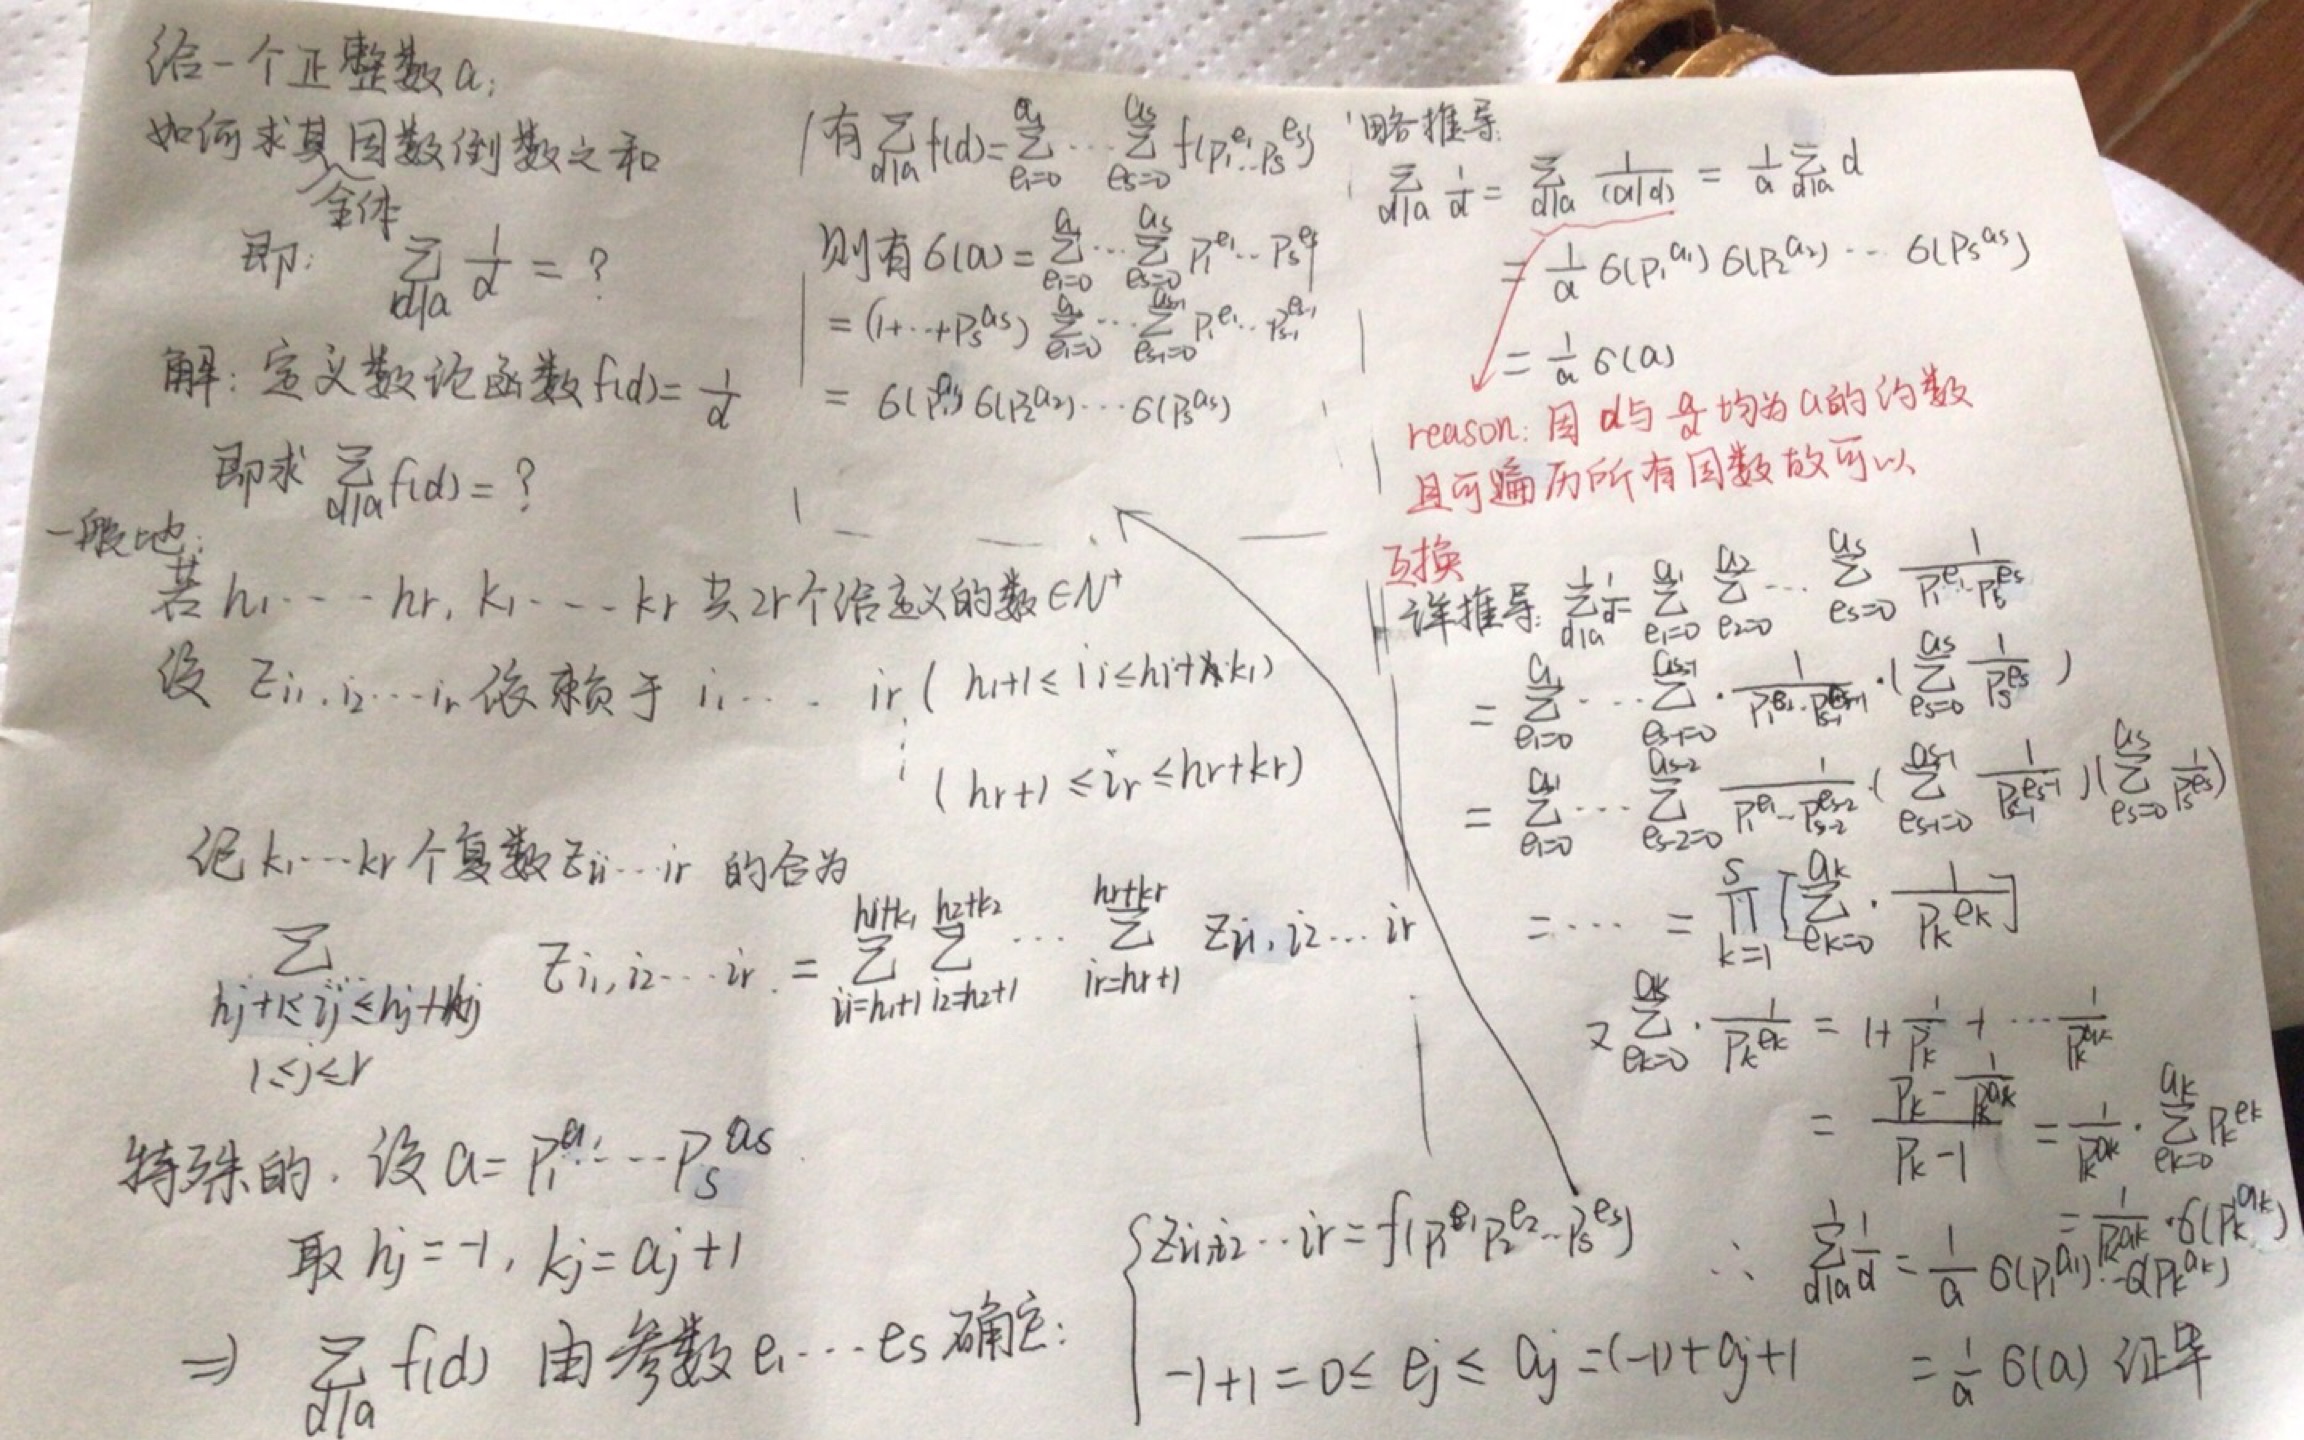 给一个正整数a;
如何求其全体因数倒数之和
即: ∑_{d|a} 1/d = ?
解: 定义数论函数f(d)= 1/d
即求 ∑_{d|a} f(d) = ?
一般地:
若 h₁----hr, k₁----kr 共2r个给定义的数∈N⁺
设 Z_{i₁,i₂…ir} 依赖于 i₁…… ir ( h₁+1 ≤ i₁ ≤ h₁+k₁)
⋮
( hr+1 ≤ ir ≤ hr+kr)
记 k₁…kr 个复数 Z_{i₁…ir} 的合为
∑_{hj+1≤ij≤hj+kj, 1≤j≤r} Z_{i₁,i₂…ir} = ∑_{i₁=h₁+1}^{h₁+k₁} ∑_{i₂=h₂+1}^{h₂+k₂} … ∑_{ir=hr+1}^{hr+kr} Z_{i₁,i₂…ir}
特殊的. 设 a= p₁^{a₁}……p_s^{a_s}
取 hj = -1, kj = aj+1
⇒ ∑_{d|a} f(d) 由参数 e₁…es 确定:
{ Z_{i₁,i₂…ir} = f(p₁^{e₁} p₂^{e₂}…p_s^{e_s})
-1+1 = 0 ≤ ej ≤ aj = (-1)+aj+1
有 ∑_{d|a} f(d) = ∑_{e₁=0}^{a₁} … ∑_{es=0}^{as} f(p₁^{e₁}…p_s^{e_s})
则有 6(a) = ∑_{e₁=0}^{a₁} … ∑_{es=0}^{as} p₁^{e₁}…p_s^{e_s}
= (1+…+p_s^{a_s}) ∑_{e₁=0}^{a₁} … ∑_{es-1=0}^{as-1} p₁^{e₁}…p_{s-1}^{e_{s-1}}
= 6(p₁^{a₁}) 6(p₂^{a₂}) … 6(p_s^{a_s})
略推导:
∑_{d|a} 1/d = ∑_{d|a} 1/(a/d) = 1/a ∑_{d|a} d
= 1/a 6(p₁^{a₁}) 6(p₂^{a₂}) … 6(p_s^{a_s})
= 1/a 6(a)
reason: 因 d与 a/d 均为a的约数
且可遍历所有因数故可以
互换
详推导: ∑_{d|a} 1/d = ∑_{e₁=0}^{a₁} ∑_{e₂=0}^{a₂} … ∑_{es=0}^{as} 1/(p₁^{e₁}…p_s^{e_s})
= ∑_{e₁=0}^{a₁} … ∑_{es-1=0}^{as-1} · 1/(p₁^{e₁}…p_{s-1}^{e_{s-1}}) · ( ∑_{es=0}^{as} 1/p_s^{e_s} )
= ∑_{e₁=0}^{a₁} … ∑_{es-2=0}^{as-2} 1/(p₁^{e₁}…p_{s-2}^{e_{s-2}}) · ( ∑_{es-1=0}^{as-1} 1/p_{s-1}^{e_{s-1}} )( ∑_{es=0}^{as} 1/p_s^{e_s} )
= … = ∏_{k=1}^{s} [ ∑_{ek=0}^{ak} · 1/p_k^{e_k} ]
又 ∑_{ek=0}^{ak} · 1/p_k^{e_k} = 1+ 1/p_k + … 1/p_k^{a_k}
= (p_k - 1/p_k^{a_k})/(p_k - 1) = 1/p_k^{a_k} · ∑_{ek=0}^{ak} p_k^{e_k}
= 1/p_k^{a_k} · 6(p_k^{a_k})
∴ ∑_{d|a} 1/d = 1/a 6(p₁^{a₁}) … 6(p_k^{a_k})
= 1/a 6(a) 证毕